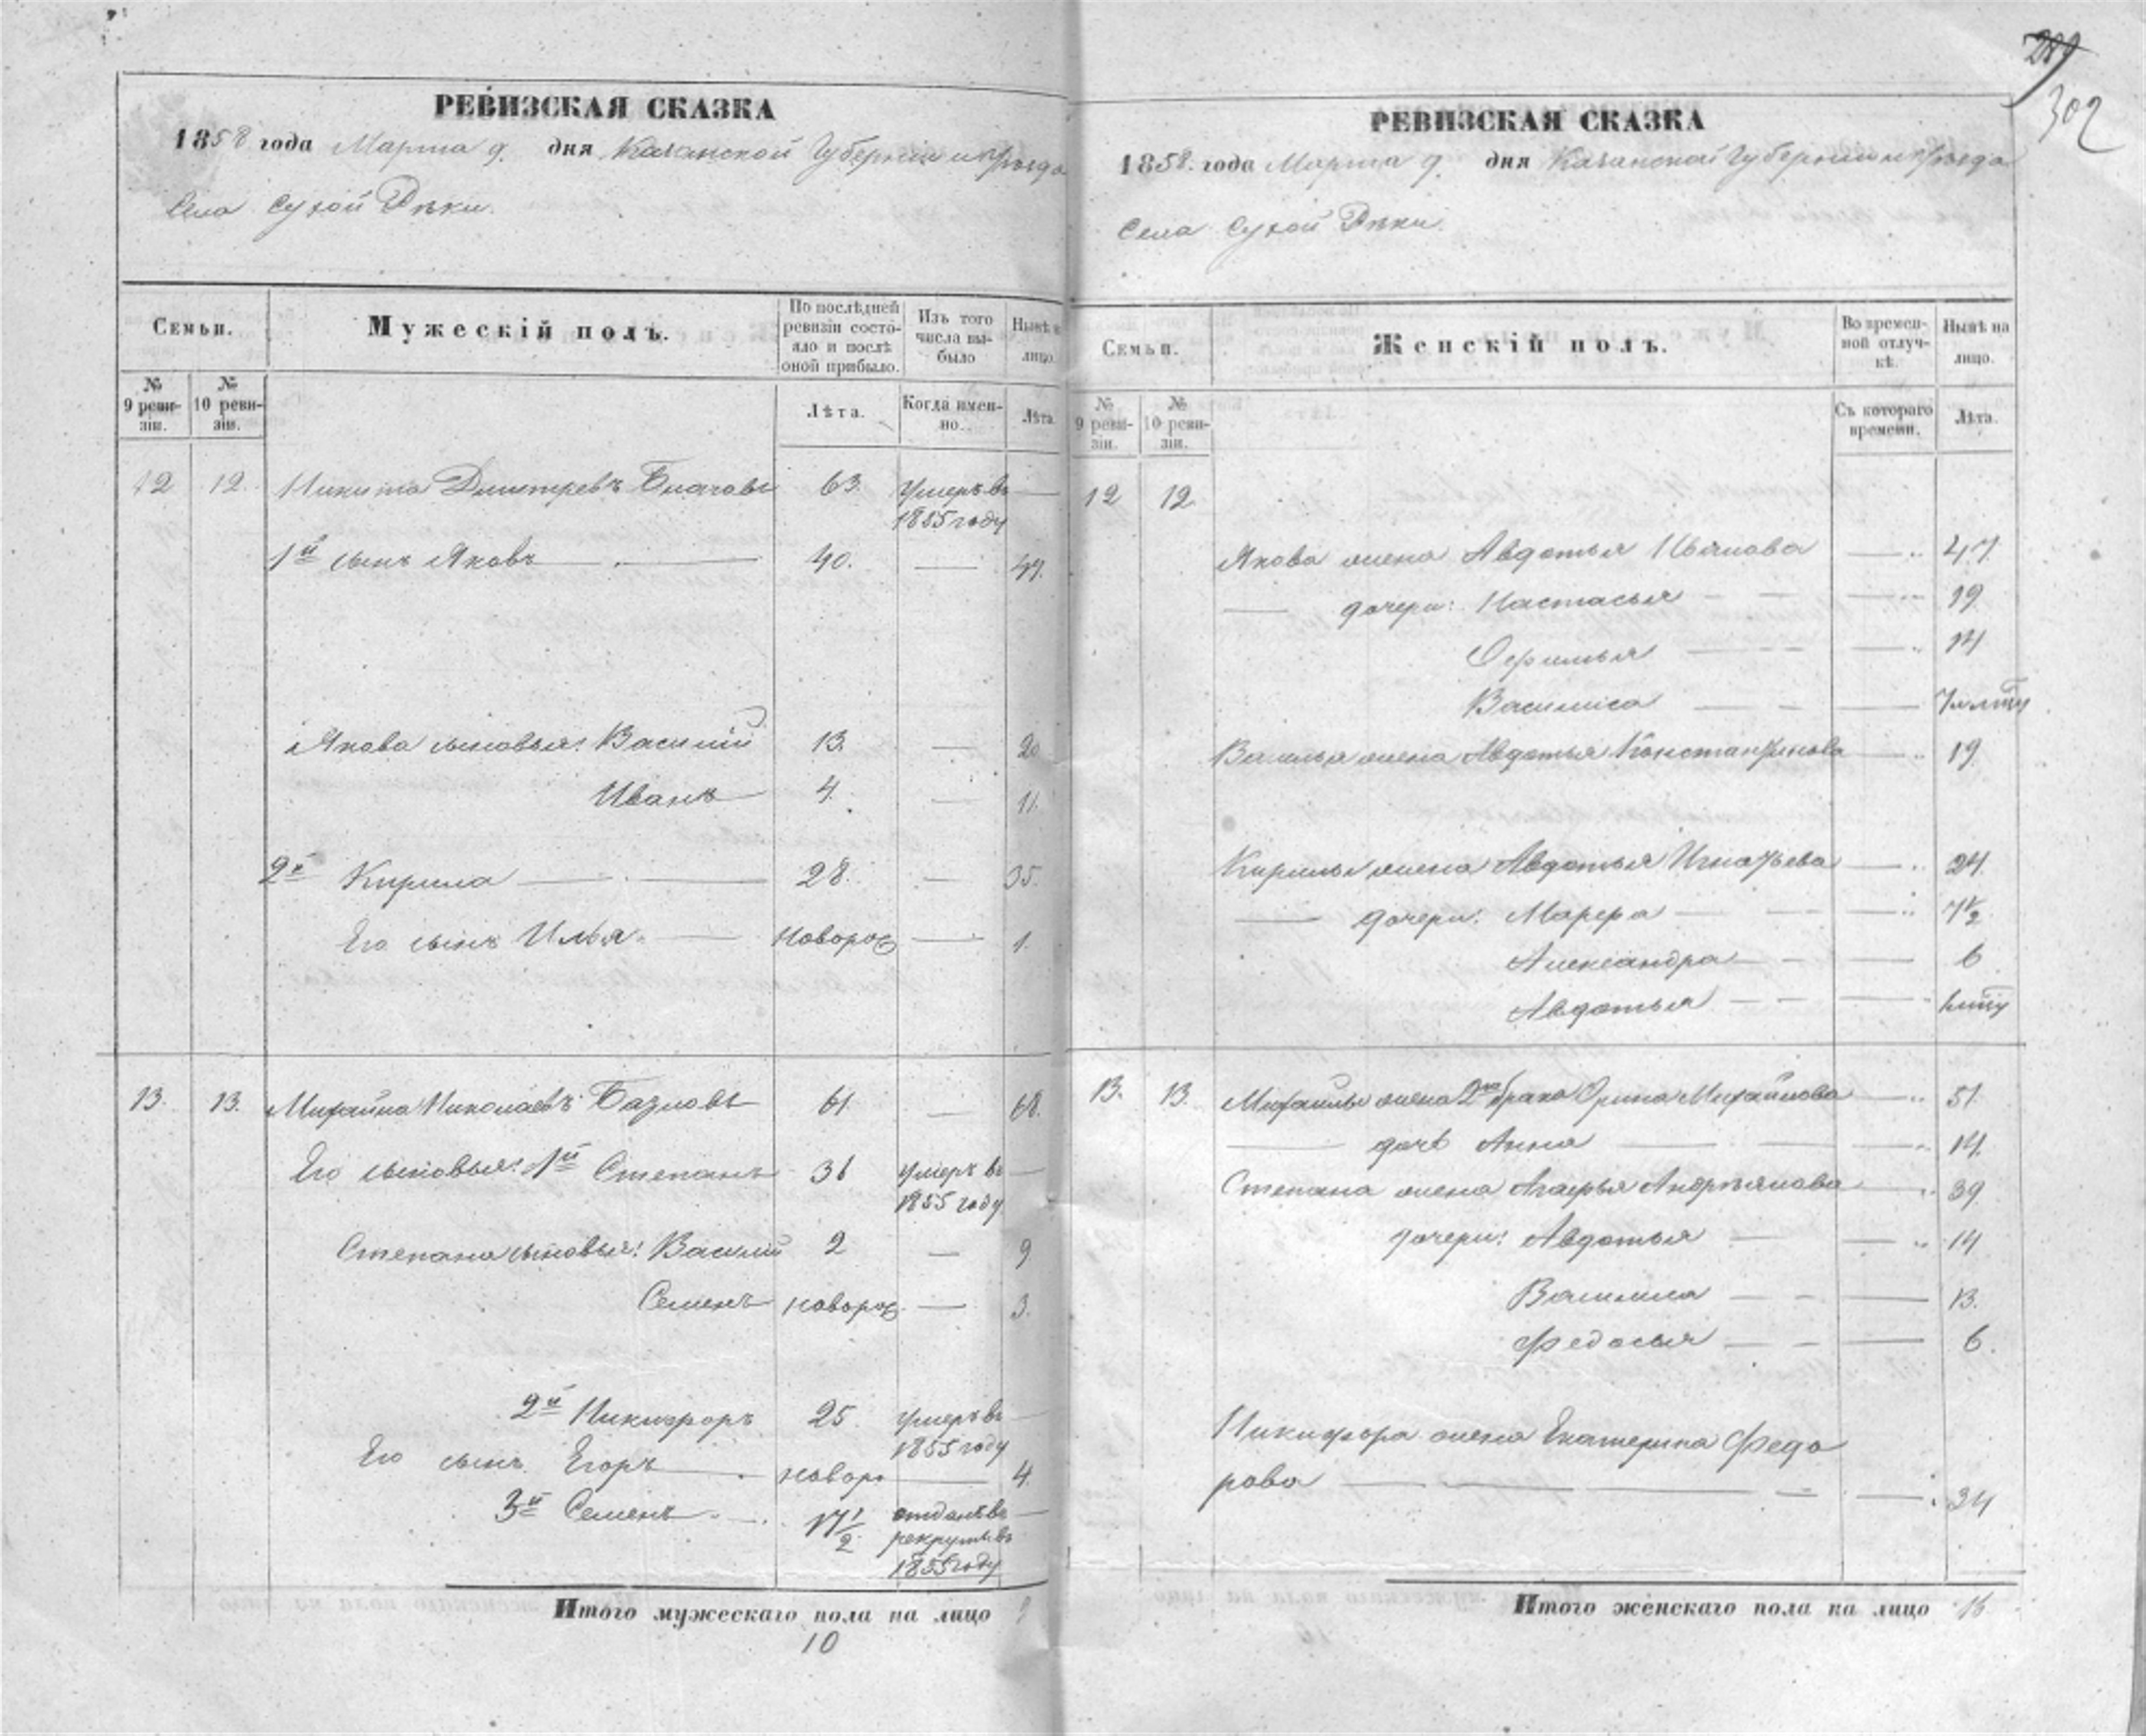 289
302
РЕВИЗСКАЯ СКАЗКА
1858 года Марта 9. дня Казанской Губерніи и уѣзда
Села Сухой Рѣки.
Семьи.
Мужескій полъ.
По послѣдней ревизіи состояло и послѣ оной прибыло.
Изъ того числа выбыло
Нынѣ на лицо.
№ 9 ревизіи.
№ 10 ревизіи.
Лѣта.
Когда именно.
Лѣта.
12 12. Никита Дмитревъ 63. Умеръ въ —
1855 году
1й сынъ Яковъ — 40. — 47.
Якова сыновья: Василий 13. — 20
Иванъ 4. — 11.
2й Кирила — 28. — 35.
Его сынъ Илья. — новорож — 1.
13. 13. Михайла Николаевъ 61. — 68.
Его сыновья: 1й Степанъ 36 умеръ въ —
1855 году
Степана сыновья: Василий 2 — 9
Семенъ новорож — 3.
2й Никифоръ 25. умеръ въ —
1855 году
Его сынъ Егоръ — новоро — 4.
3й Семенъ — 17 1/2 отданъ въ —
рекруты въ
1855 году
Итого мужескаго пола на лицо 9
10
РЕВИЗСКАЯ СКАЗКА
1858. года Марта 9. дня Казанской Губерніи и уѣзда
Села Сухой Рѣки.
Семьи.
Женскій полъ.
Во временной отлучкѣ.
Нынѣ на лицо.
№ 9 ревизіи.
№ 10 ревизіи.
Съ котораго времени.
Лѣта.
12 12.
Якова жена Авдотья — 47.
— дочери: Настасья — 19
Офимья — 14
Василиса —
Василья жена Авдотья Константинова — 19
Кирилы жена Авдотья Игнатьева — 24.
— дочери: Марфа — 7 1/2
Александра — 6
Авдотья —
13. 13. Михайлы жена 2го брака Орина Михайлова — 51.
— дочь Анна — 14.
Степана жена Агафья Андреянова — 39.
дочери: Авдотья — 14
Василиса — 13.
Федосья — 6.
Никифора жена Екатерина Федо
рова — 34
Итого женскаго пола на лицо 16